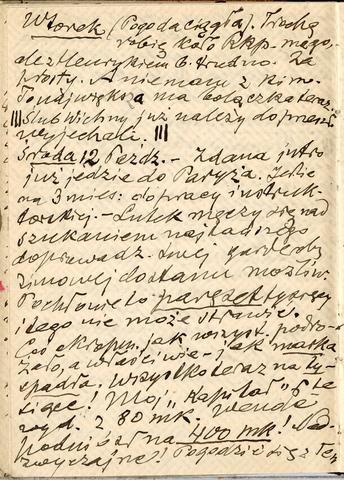 Wtorek (Pogoda ciągła). Trochę
robię koło Rkp. mego,
ale z Henrykiem B. trudno. Za
prosty. A nie mam z kim.
To największa ma bolączka teraz.
||| Ślub Wichny już należy do przeszł.
wyjechali. |||
Środa 12 Paźdz. – Zdana jutro
już jedzie do Paryża. Jedzie
na 3 mies. do pracy instruk-
torskiej. – Lutek męczy się nad
szukaniem najtańszego
doprowadz. mej garderoby
zimowej do stanu możliw.
Pochłonie to parę set tysięcy
i tego nie może strawić.
Coś okropn. jak wszyst. podro-
żało, a właściwie – jak marka
spadła. Wszystko teraz na ty-
siące! Mój „Kapitał" z te
wyd. z 80 mk. Wende
podniósł na 400 mk! Nad-
zwyczajne! Pogodzić się z tem